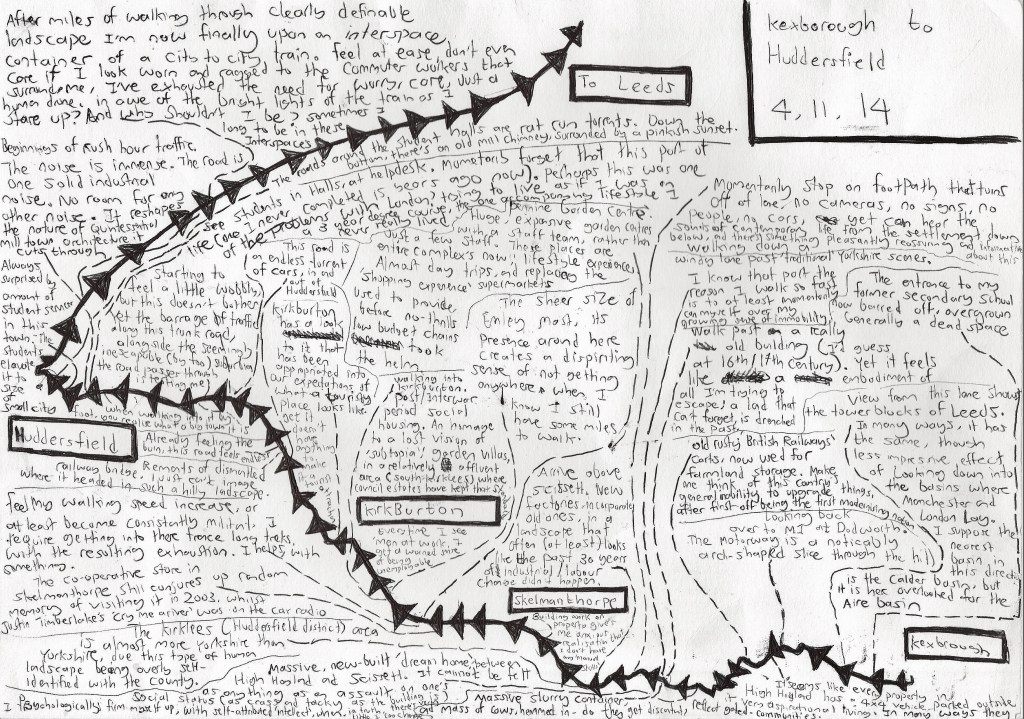 After miles of walking through clearly definable
landscape I'm now finally upon an interspace,
container of a City to city train. feel at ease, don't even
care if I look worn and ragged to the commuter workers that
surround me, I've exhausted the need for worry, care, Just a
human drone. in awe of the bright lights of the train as I
stare up? And why Shouldn't I be? sometimes
long to be in these
Interspaces
To Leeds
kexborough to
Huddersfield
4, 11, 14
Beginnings of Rush hour traffic.
The noise is immense. The road is
one solid industrial
noise. No room for any
other noise. It reshapes
the nature of Quintessential
mill town architecture
cuts through
The roads around the student halls are rat run torrents. Down the
bottom, there's an old mill chimney, surrounded by a pinkish sunset.
Halls, at helpdesk. Momentarily forget that this part of
see students in
life (one I never completed is years ago now). perhaps this was one
of the problems with London? trying to live as if I was on
a 3 years degree course, the one accompanying lifestyle I
never really lived
Always
surprised by
amount of
student sense
in this
town. The
students
elevate
it to
size
of
small city
Starting to
feel a little wobbly,
but this doesn't bother
yet the barrage of traffic
along this trunk road,
alongside the seemingly
inescapable (by foot) suburbia
the road passes through
This road is
an endless torrent
of cars, in and
out of
Huddersfield
Huge, expansive garden centres
with a staff team, rather than
Just a few staff. These places are
entire complex's now; lifestyle experiences
Almost day trips, and replaces the
shopping experience supermarkets
used to provide,
before no-thrills
low budget chains
took
the helm.
Kirkburton
has a look
to it that
has been
appropriated into
our expectations of
what a touristy
place looks like.
yet it
doesn't
have
anything
The sheer size of
Emley most, its
Presence around here
Creates a dispiriting
sense of not getting
anywhere, when I
know I still
have some miles
to walk.
walking into
Kirkburton.
Post/interwar
period social
housing. An homage
to a lost vision of
'subtopia'. Garden villas,
in a relatively affluent
area (south kirklees) where
council estates have kept that
KirkBurton
Everytime I see
'men at work', I
get a worried
of being
unemployable
Huddersfield
when walking into it by
foot, you realise what a big town it is
Already feeling the
burn, this road feels endless
railway bridge. Remnants of dismantled
where it headed in such a hilly landscape.
feel my walking speed increase, or
at least become consistently militant. I
require getting into these trance long treks,
with the resulting exhaustion. It helps with
something.
The co-operative store in
Skelmanthorpe still conjures up random
memory of visiting it in 2003, whilst
Justin Timberlake's 'cry me a river' was on the car radio
The kirklees (Huddersfield district) area
is almost more Yorkshire than
Yorkshire, due this type of human
landscape being overly self-
identified with the county.
Massive, new-built 'dream home' between
High Hoyland and Scissett. It cannot be felt
as anything as an assault on one's
Social status
I psychologically firm myself up, with self-attributed intellect,
Arrive above
scissett. New
factories incorporate
old ones, in a
landscape that
often (at least) looks
like the past 30 years
of industrial/labour
change didn't happen.
Skelmanthorpe
Building work on
property gives
me
realization
I don't have
any manual
skills
Massive slurry container,
mass of cows, hemmed in - do they get discounted,
It seems like every property in
High Hoyland has a 4x4 vehicle parked outside
very aspirational living. In many ways they
reflect gated-communities
Momentarily stop on footpath that turns
off of lane, no cameras, no signs, no
people, no cars, yet can hear the
sounds of contemporary life from the settlement down
below, and there's something pleasantly reassuring and
walking down an about this
windy lane past traditional Yorkshire scenes.
I know that part the
reason I walk so fast
is to at least momentarily
can my self over my
growing sense of immobility.
Walk past a really
old building (I guess
at 16th/17th Century). Yet it feels
like a embodiment of
all I'm trying to
escape; a land that
can't forget, is drenched
in the past
The entrance to my
former secondary school
now barred off, overgrown
Generally a dead space
View from this lane shows
the towerblocks of Leeds.
In many ways, it has
the same, though
less impressive, effect
of Looking down into
the basins where
Manchester and
London Lay.
I suppose the
nearest
basin in
this direction
is the Calder basin, but
it is here overlooked for the
Aire basin
old rusty British Railways'
carks, now used for
farmland storage. Make
me think of this country's
general inability to upgrade things,
after first off being the first modernizing nation
Looking back
over to M1 at Dodworth.
The Motorway is a noticably
arch-shaped slice through the hill
kexbrough